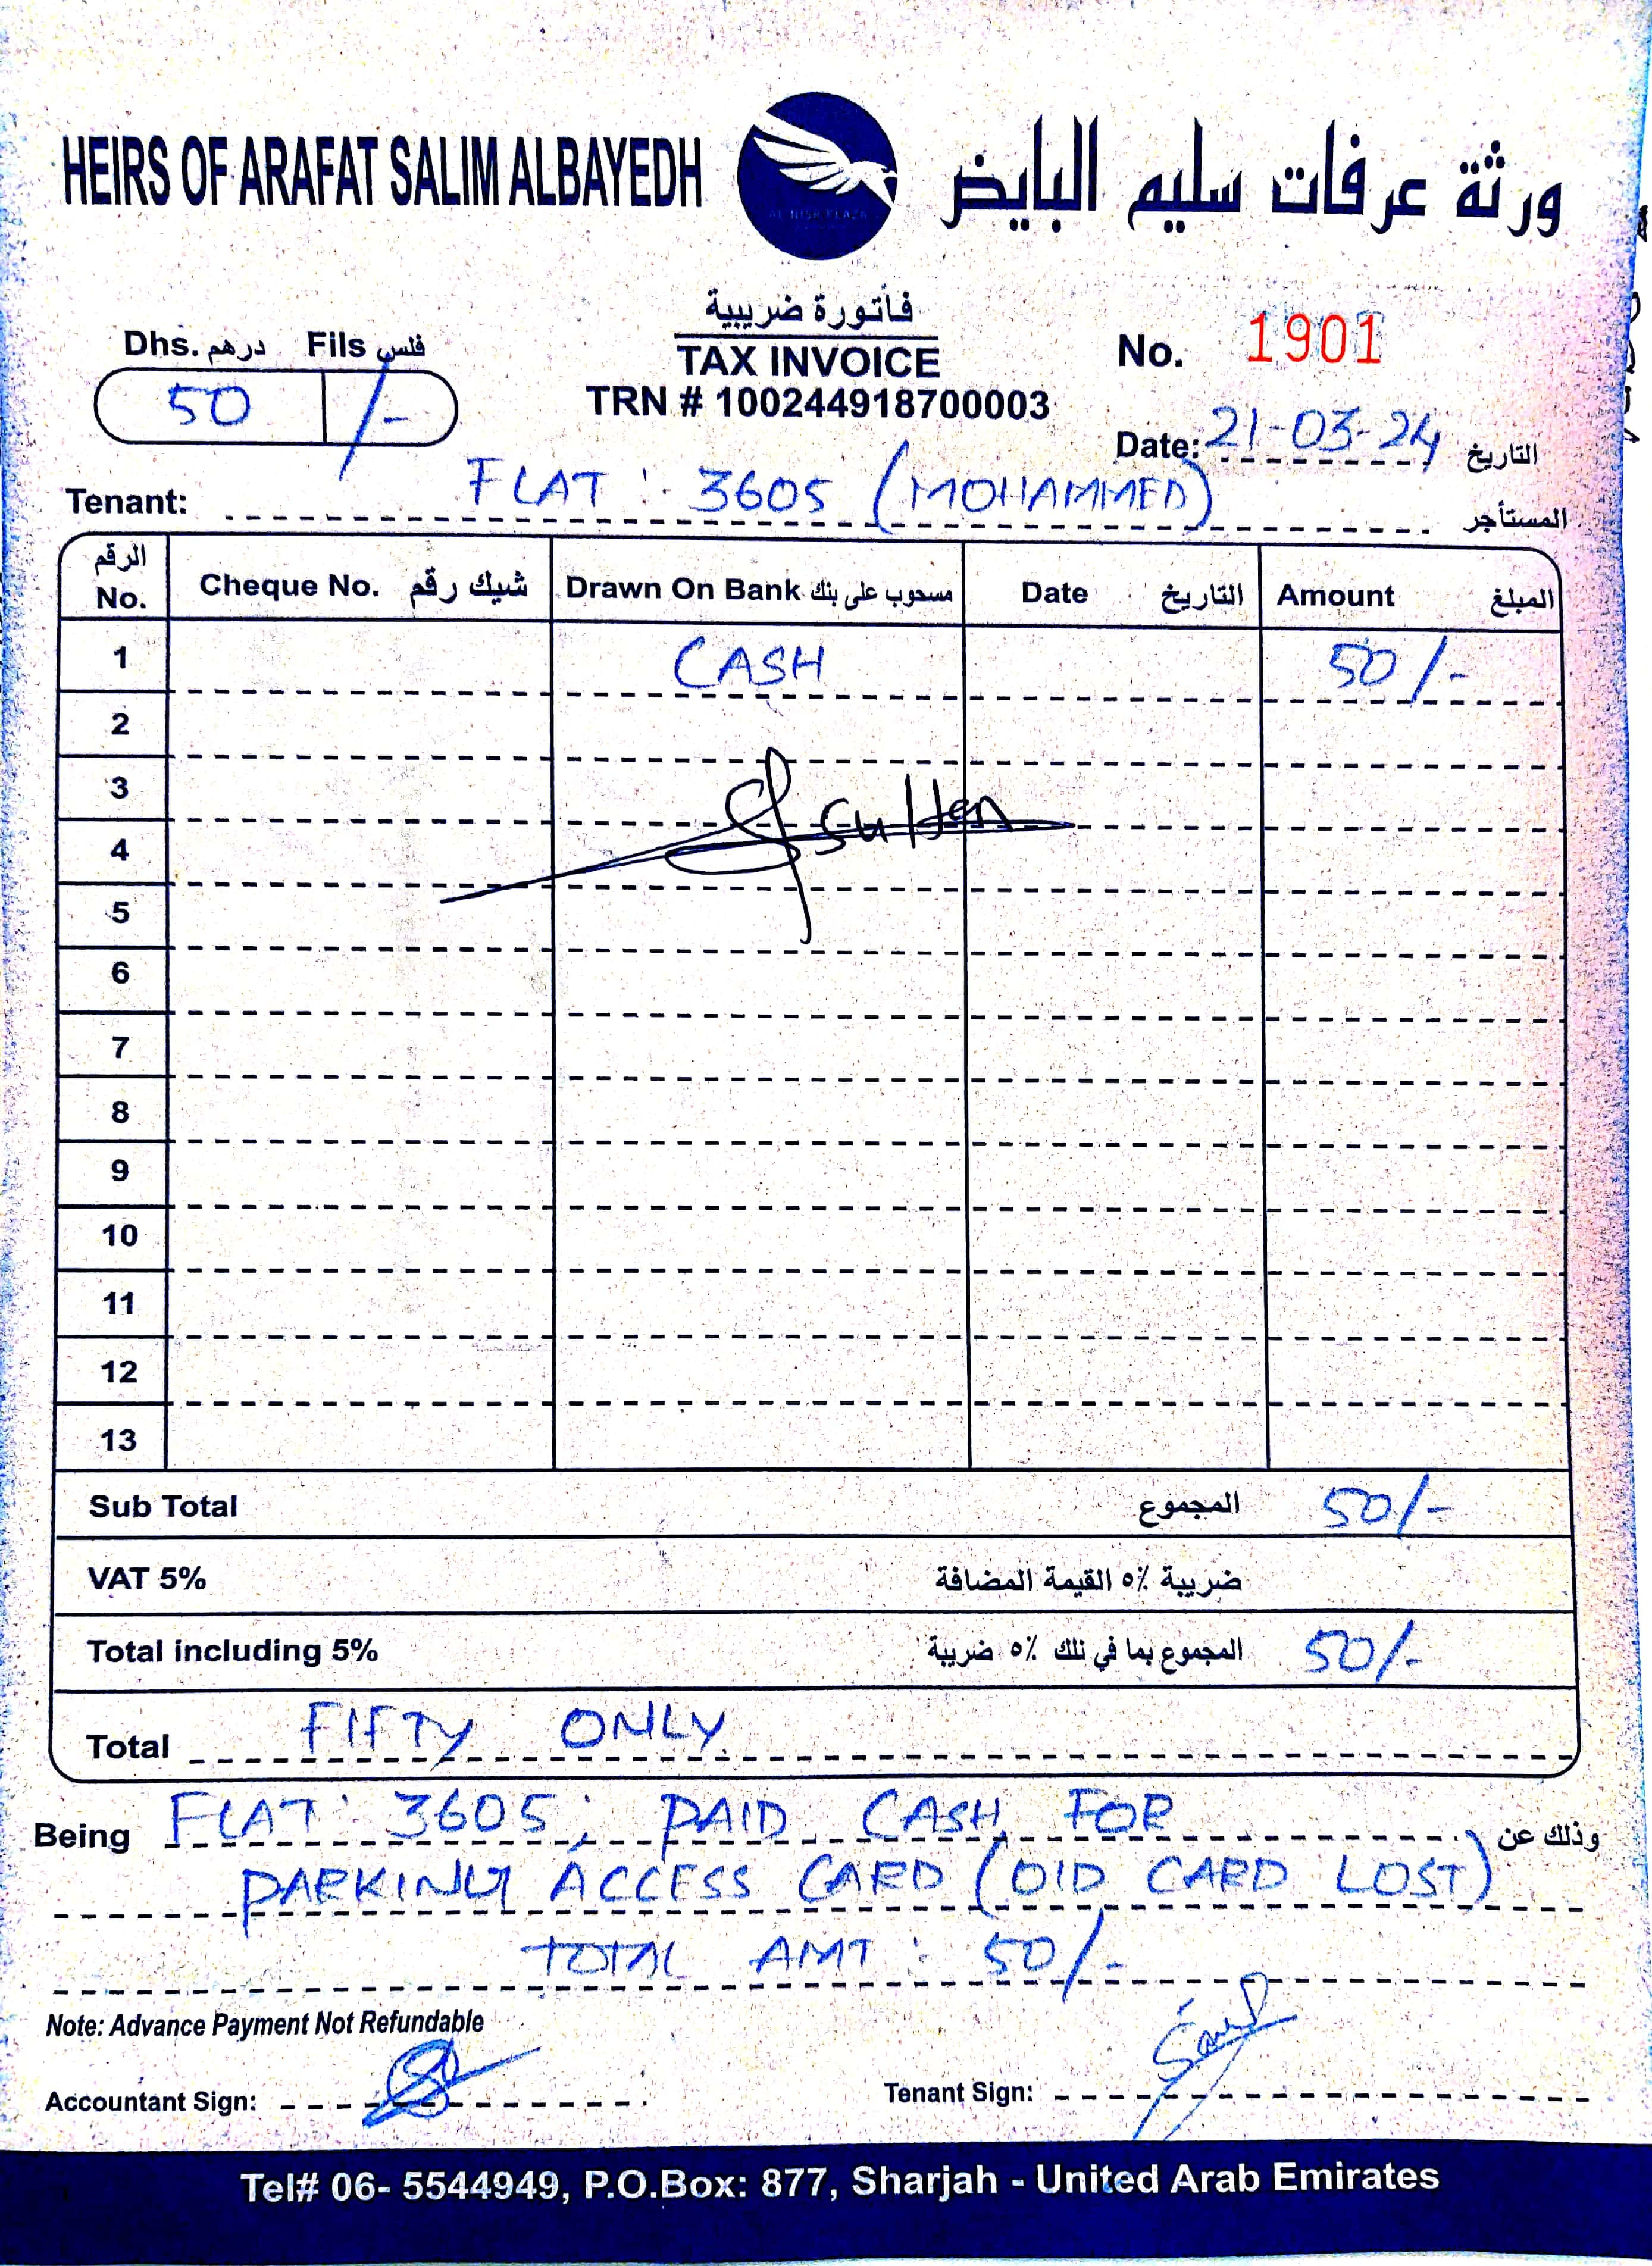 HEIRS OF ARAFAT SALIM ALBAYEDH
AL NISR PLAZA
ورثة عرفات سليم البايض
فاتورة ضريبية
TAX INVOICE
TRN # 100244918700003
Dhs. درهم Fils فلس
50 /-
No. 1901
Date: 21-03-24 التاريخ
Tenant: FLAT :- 3605 (MOHAMMED) المستأجر
الرقم No. Cheque No. شيك رقم Drawn On Bank مسحوب على بنك Date التاريخ Amount المبلغ
1 CASH 50/-
2
3
Sultan
4
5
6
7
8
9
10
11
12
13
Sub Total المجموع 50/-
VAT 5% ضريبة ٥٪ القيمة المضافة
Total including 5% المجموع بما في ذلك ٥٪ ضريبة 50/-
Total FIFTY ONLY.
Being FLAT: 3605; PAID CASH FOR وذلك عن
PARKING ACCESS CARD (OLD CARD LOST)
TOTAL AMT : 50/-
Note: Advance Payment Not Refundable
Accountant Sign: Tenant Sign:
Tel# 06- 5544949, P.O.Box: 877, Sharjah - United Arab Emirates